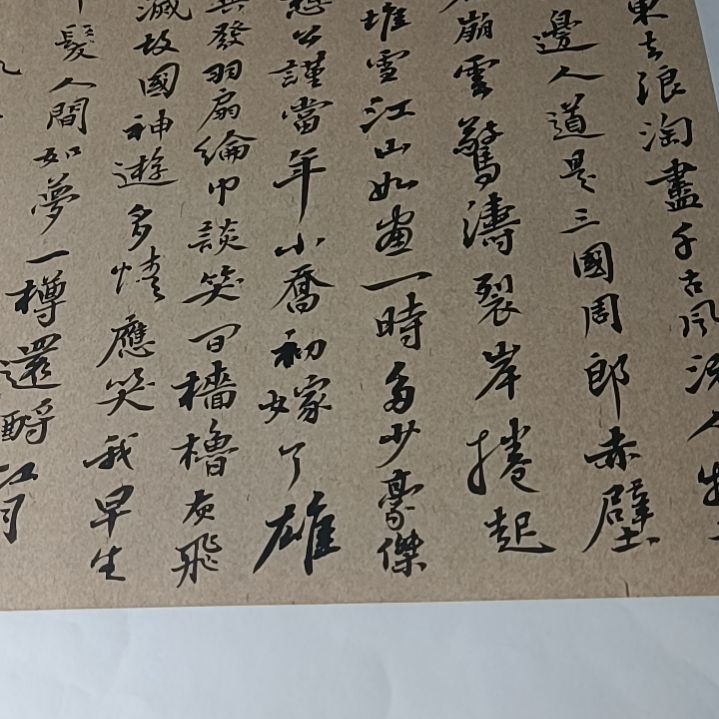 東去浪淘盡千古風流人物
邊人道是三國周郎赤壁
崩雲驚濤裂岸捲起
堆雪江山如畫一時多少豪傑
想公謹當年小喬初嫁了雄
英發羽扇綸巾談笑間檣櫓灰飛
滅故國神遊多情應笑我早生
髮人間如夢一樽還酹江月